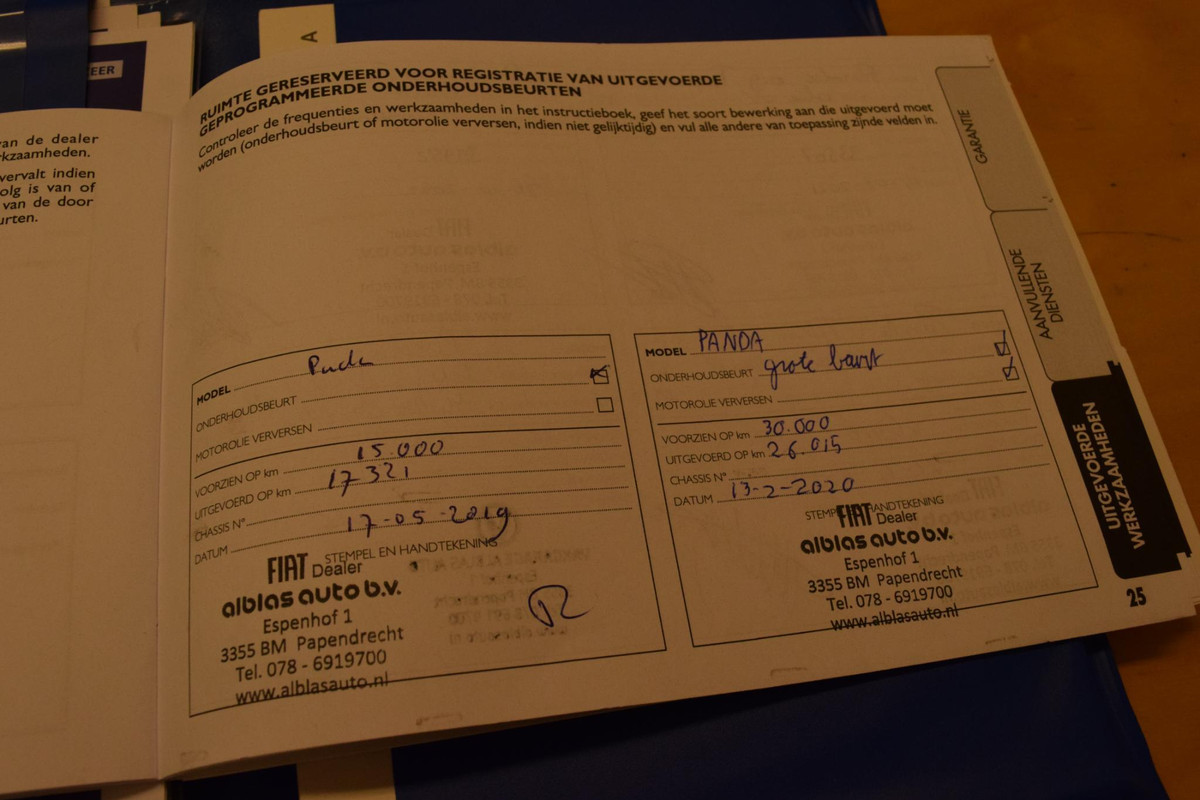 A
EER
van de dealer
rkzaamheden.
vervalt indien
olg is van of
van de door
urten.
RUIMTE GERESERVEERD VOOR REGISTRATIE VAN UITGEVOERDE
GEPROGRAMMEERDE ONDERHOUDSBEURTEN
Controleer de frequenties en werkzaamheden in het instructieboek, geef het soort bewerking aan die uitgevoerd moet
worden (onderhoudsbeurt of motorolie verversen, indien niet gelijktijdig) en vul alle andere van toepassing zijnde velden in.
MODEL
ONDERHOUDSBEURT
MOTOROLIE VERVERSEN
VOORZIEN OP km 15.000
UITGEVOERD OP km 17321
CHASSIS N°
DATUM 17-05-2019
STEMPEL EN HANDTEKENING
FIAT Dealer
alblas auto b.v.
Espenhof 1
3355 BM Papendrecht
Tel. 078 - 6919700
www.alblasauto.nl
MODEL PANDA
ONDERHOUDSBEURT grote beurt
MOTOROLIE VERVERSEN
VOORZIEN OP km 30.000
UITGEVOERD OP km 26.015
CHASSIS N°
DATUM 13-2-2020
STEMPEL EN HANDTEKENING
FIAT Dealer
alblas auto b.v.
Espenhof 1
3355 BM Papendrecht
Tel. 078 - 6919700
www.alblasauto.nl
GARANTIE
AANVULLENDE
DIENSTEN
UITGEVOERDE
WERKZAAMHEDEN
25